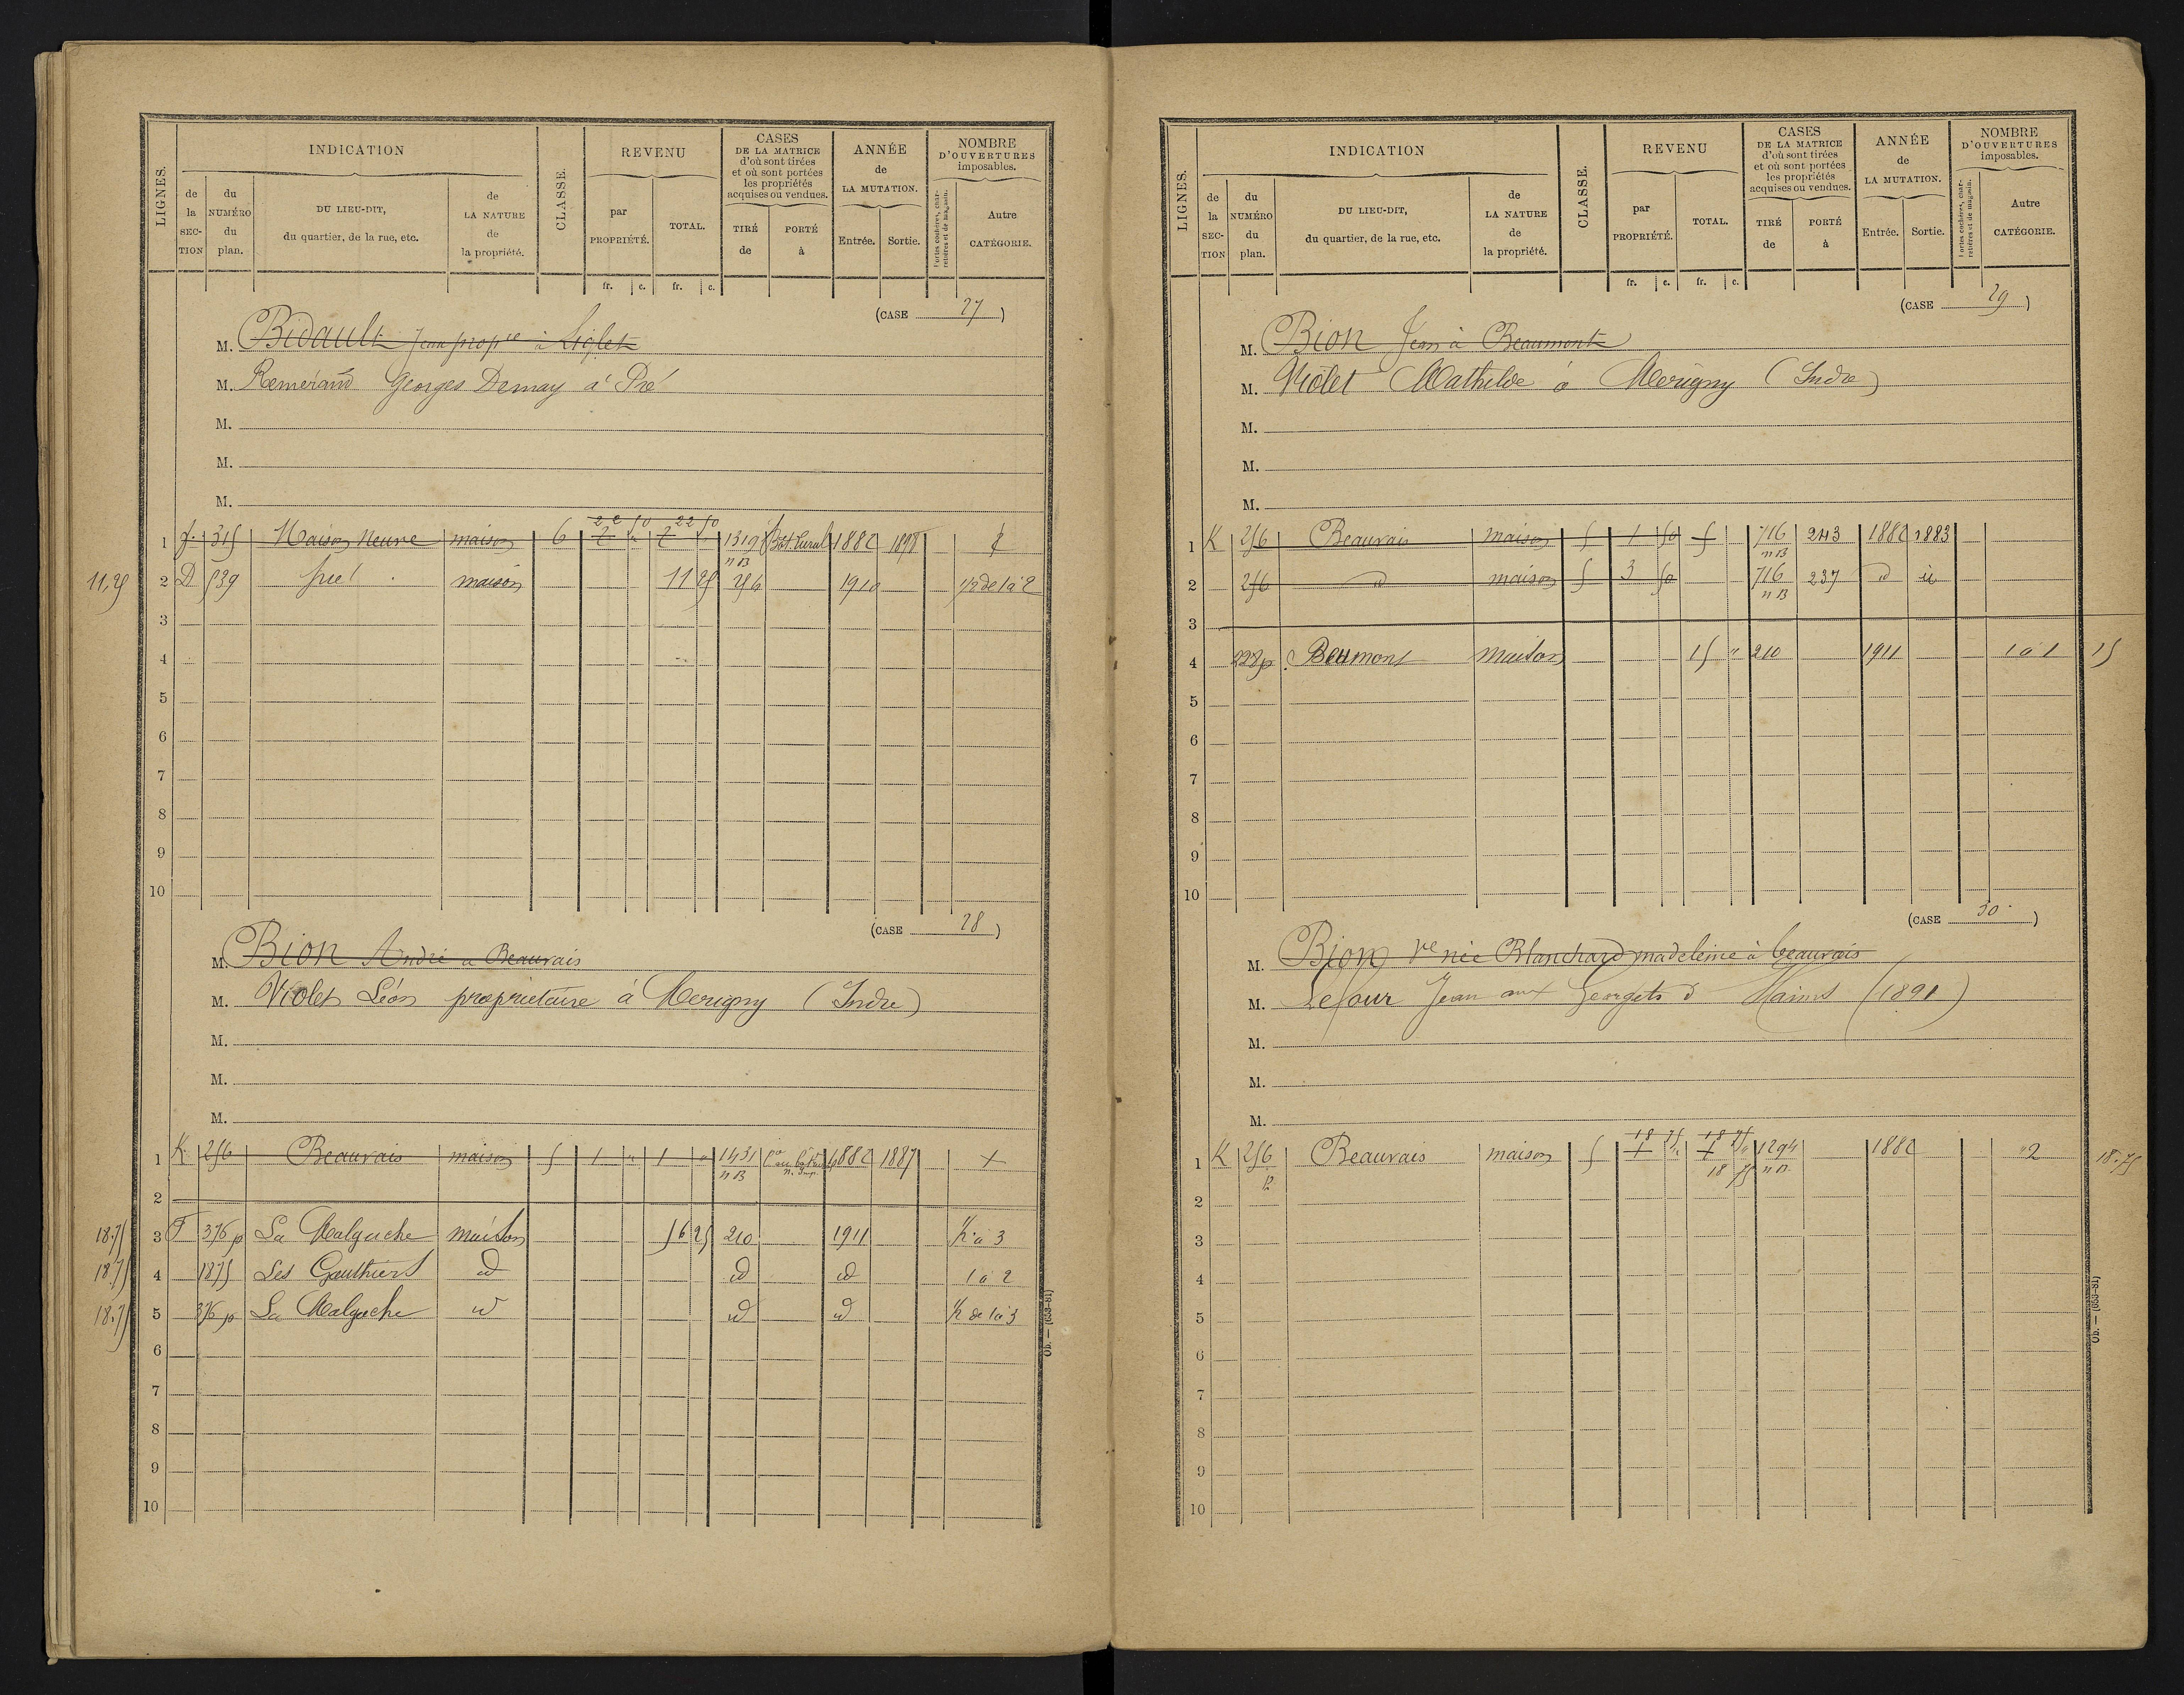 LIGNES.
INDICATION
de la SECTION
du NUMÉRO du plan.
DU LIEU-DIT, du quartier, de la rue, etc.
de LA NATURE de la propriété.
CLASSE.
REVENU
par PROPRIÉTÉ.
TOTAL.
fr. c. fr. c.
CASES DE LA MATRICE d'où sont tirées et où sont portées les propriétés acquises ou vendues.
TIRÉ de
PORTÉ à
ANNÉE de LA MUTATION.
Entrée. Sortie.
NOMBRE D'OUVERTURES imposables.
Portes cochères, charretières et de magasin.
Autre CATÉGORIE.
(CASE 27)
M. Bidault Jean propre à Liglet
M. Remérand Georges Demay à Pré
M.
M.
M.
22 50 22 50
1 J. 315 Maison Neuve maison 6 2 2 1319 nB Bât. rural 1882 1898
11,25 2 D 539 maison 11 25 256 1910 1/2 de 1 à 2
3
4
5
6
7
8
9
10
(CASE 28)
M. Bion André à Beauvais
M. Violet Léon propriétaire à Merigny (Indre)
M.
M.
M.
1 K 256 Beauvais maison 5 1 " 1 " 1431 nB 1882 1887
2
18.75 3 F 376 p La Malgache maison 56 25 210 1911 à 3
18.75 4 1875 Les Gauthiers id id id 1 à 2
18.75 5 376 p La Malgache id id id 1/2 de 1 à 3
6
7
8
9
10
Ob. — (653-81)
LIGNES.
INDICATION
de la SECTION
du NUMÉRO du plan.
DU LIEU-DIT, du quartier, de la rue, etc.
de LA NATURE de la propriété.
CLASSE.
REVENU
par PROPRIÉTÉ.
TOTAL.
fr. c. fr. c.
CASES DE LA MATRICE d'où sont tirées et où sont portées les propriétés acquises ou vendues.
TIRÉ de
PORTÉ à
ANNÉE de LA MUTATION.
Entrée. Sortie.
NOMBRE D'OUVERTURES imposables.
Portes cochères, charretières et de magasin.
Autre CATÉGORIE.
(CASE 29)
M. Bion Jean à Beaumont
M. Violet Mathilde à Merigny (Indre)
M.
M.
M.
1 K 256 Beauvais maison 5 1 50 5 716 nB 243 1882 1883
2 256 d maison 5 3 50 716 nB 237 d id
3
4 228 p. Beaumont maison 15 " 210 1911 1 à 1 15
5
6
7
8
9
10
(CASE 30)
M. Bion Ve née Blanchard madeleine à beauvais
M. Lefour Jean aux Georgets d'Haims (1891)
M.
M.
M.
18 75 18 75
1 K 256 Beauvais maison 5 1 1 1294 nB 1882 2 18.75
18 75
2
3
4
5
6
7
8
9
10
Ob. — (653-81)